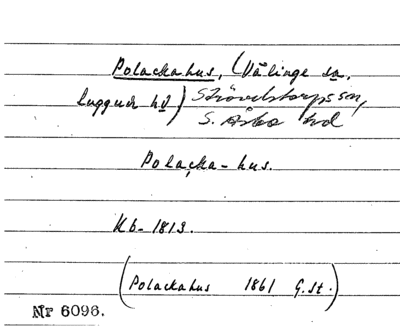 Polackahus, (Välinge sn.
Luggude hd) Strövelstorps sn,
S. Åsbo hd
Polacka-hus.
Kb- 1813.
(Polackahus 1861 G.St.)
Nr 6096.